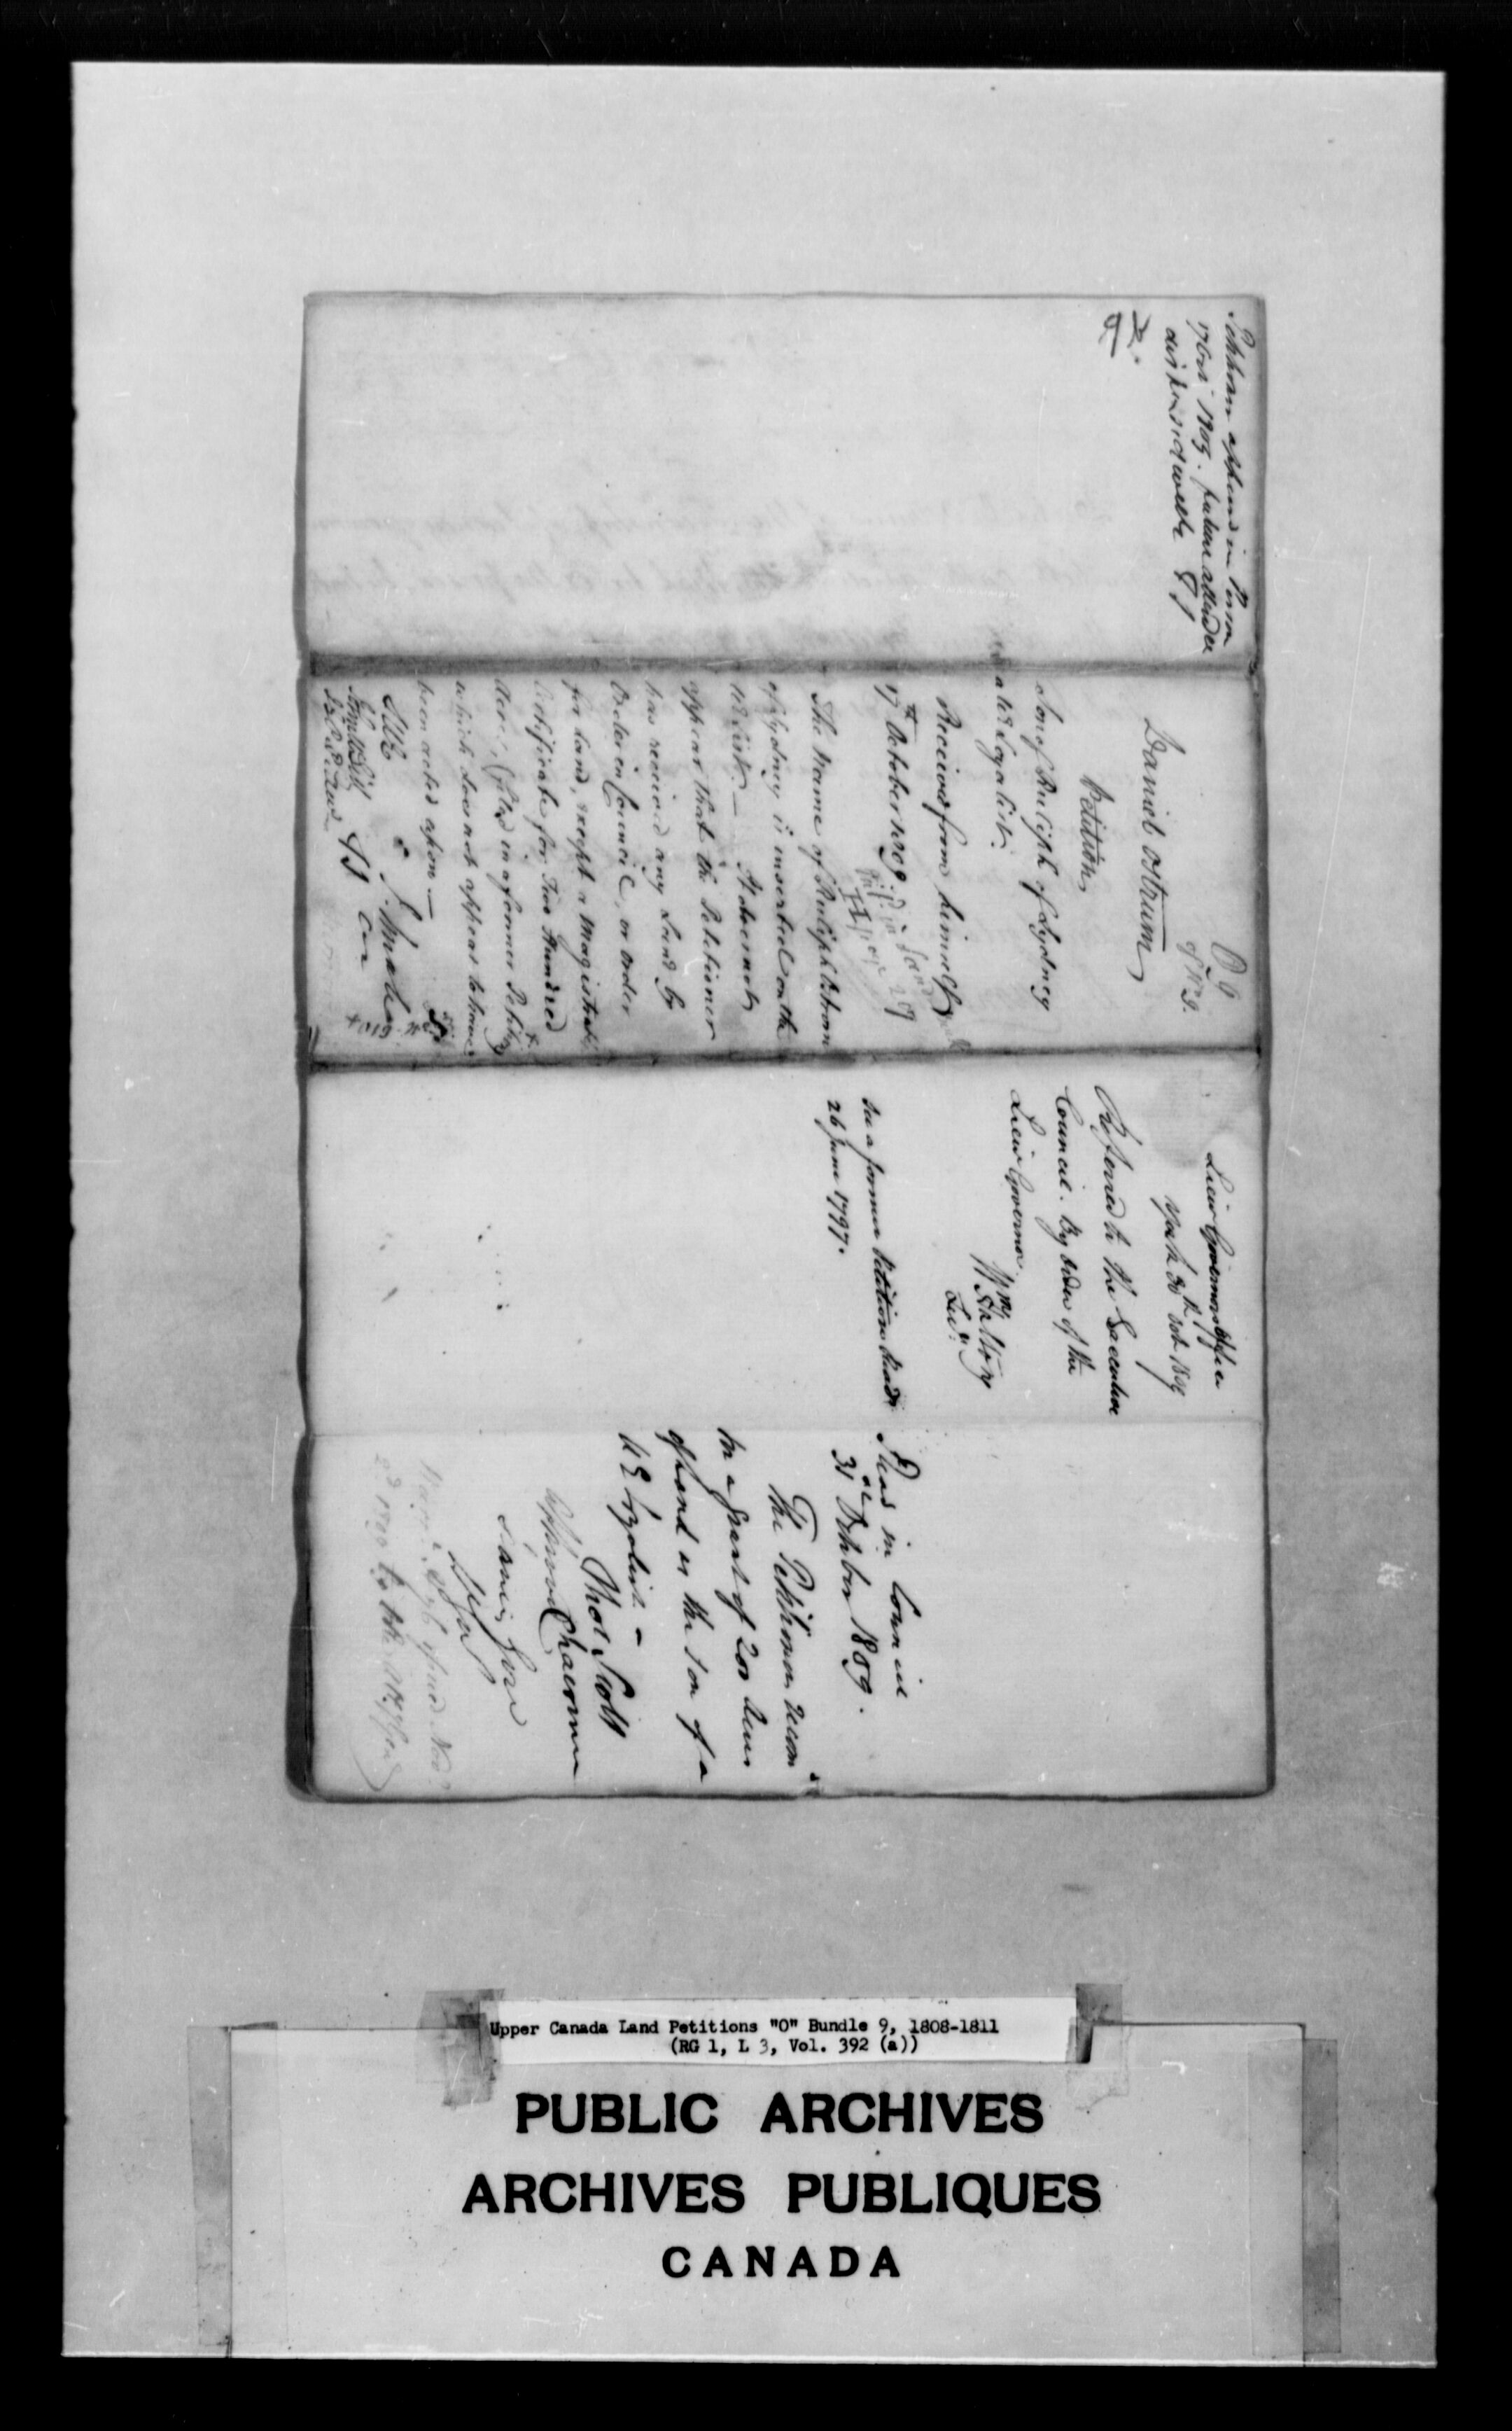 Petitioner appeared in Person
17 Oct 1809. further attendance
dispensed with
9
O 9
of No 9.
Daniel Ostrum
Petition
Son of Ruliph of Sydney
a UE Loyalist.
Received from himself
17th October 1809
in Land
page 209
The Name of Ruliph Ostrum
of Sydney is inserted on the
UE List. — It does not
appear that the Petitioner
has received any Land by
Order in Council, or order
for Land, except a Magistrate's
Certificate for Two Hundred
Acres (filed in a former Petition)
which does not appear to have
been acted upon —
Lieut Governors Office
York 30th Oct 1809
Referred to the Executive
Council. By order of the
Lieut Governor
Wm Halton
Secy
See a former Petition Read
26 June 1797.
Read in Council
31st October 1809.
The Petitioner recomd
for a Grant of 200 Acres
of Land as the Son of a
UE Loyalist –
Thos Scott
Chairman
Approved
Francis Gore
Lt Govr
Upper Canada Land Petitions "O" Bundle 9, 1808-1811
(RG 1, L 3, Vol. 392 (a))
PUBLIC ARCHIVES
ARCHIVES PUBLIQUES
CANADA